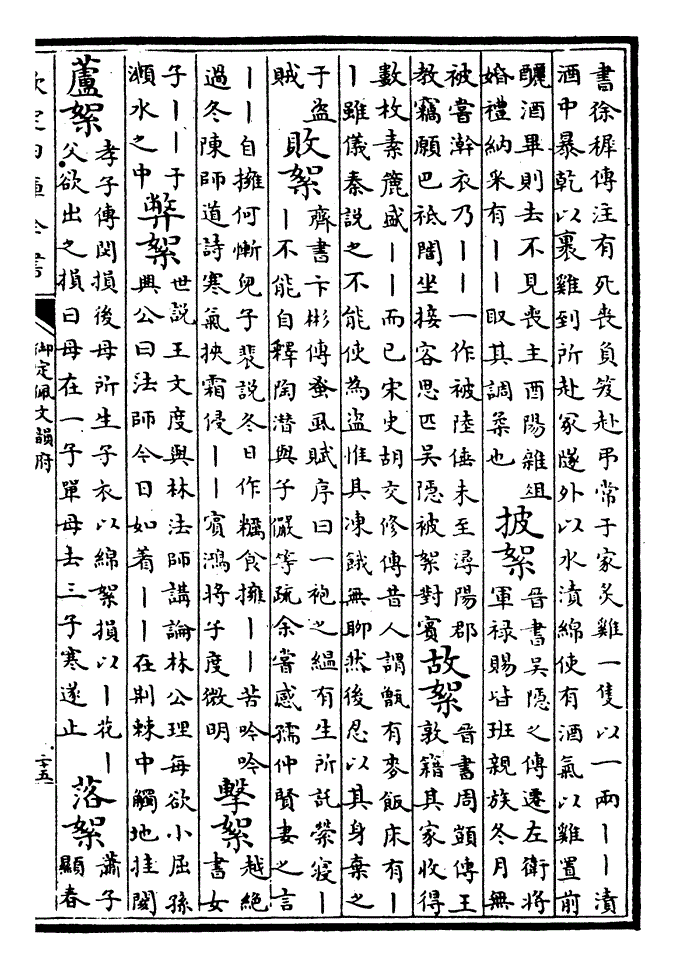 書徐穉傳注有死喪負笈赴弔常于家炙雞一隻以一兩丨丨漬
酒中暴乾以裹雞到所赴冢隧外以水漬綿使有酒氣以雞置前
釃酒畢則去不見喪主酉陽雜俎
婚禮納采有丨丨取其調柔也
披絮
晉書吳隱之傳遷左衛將
軍祿賜皆班親族冬月無
被嘗澣衣乃丨丨一作被陸倕未至潯陽郡
教竊願巴祗闇坐接客思匹吳隱被絮對賓
故絮
晉書周顗傳王
敦籍其家收得
數枚素簏盛丨丨而已宋史胡交修傳昔人謂甑有麥飯床有丨
丨雖儀秦説之不能使為盜惟其凍餓無聊然後忍以其身棄之
于盜
賊
敗絮
齊書卞彬傳蚤虱賦序曰一袍之緼有生所託縈寢丨
丨不能自釋陶潛與子儼等疏余嘗感孺仲賢妻之言
丨丨自擁何慚兒子裴説冬日作糲食擁丨丨苦吟吟
過冬陳師道詩寒氣挾霜侵丨丨賓鴻將子度微明
擊絮
越絶
書女
子丨丨于
瀬水之中
弊絮
世説王文度與林法師講論林公理每欲小屈孫
興公曰法師今日如着丨丨在荆棘中觸地挂閡
蘆絮
孝子傳閔損後母所生子衣以綿絮損以丨花丨
父欲出之損曰母在一子單母去三子寒遂止
落絮
蕭子
顯春
欽定四庫全書
御定佩文韻府
二十五